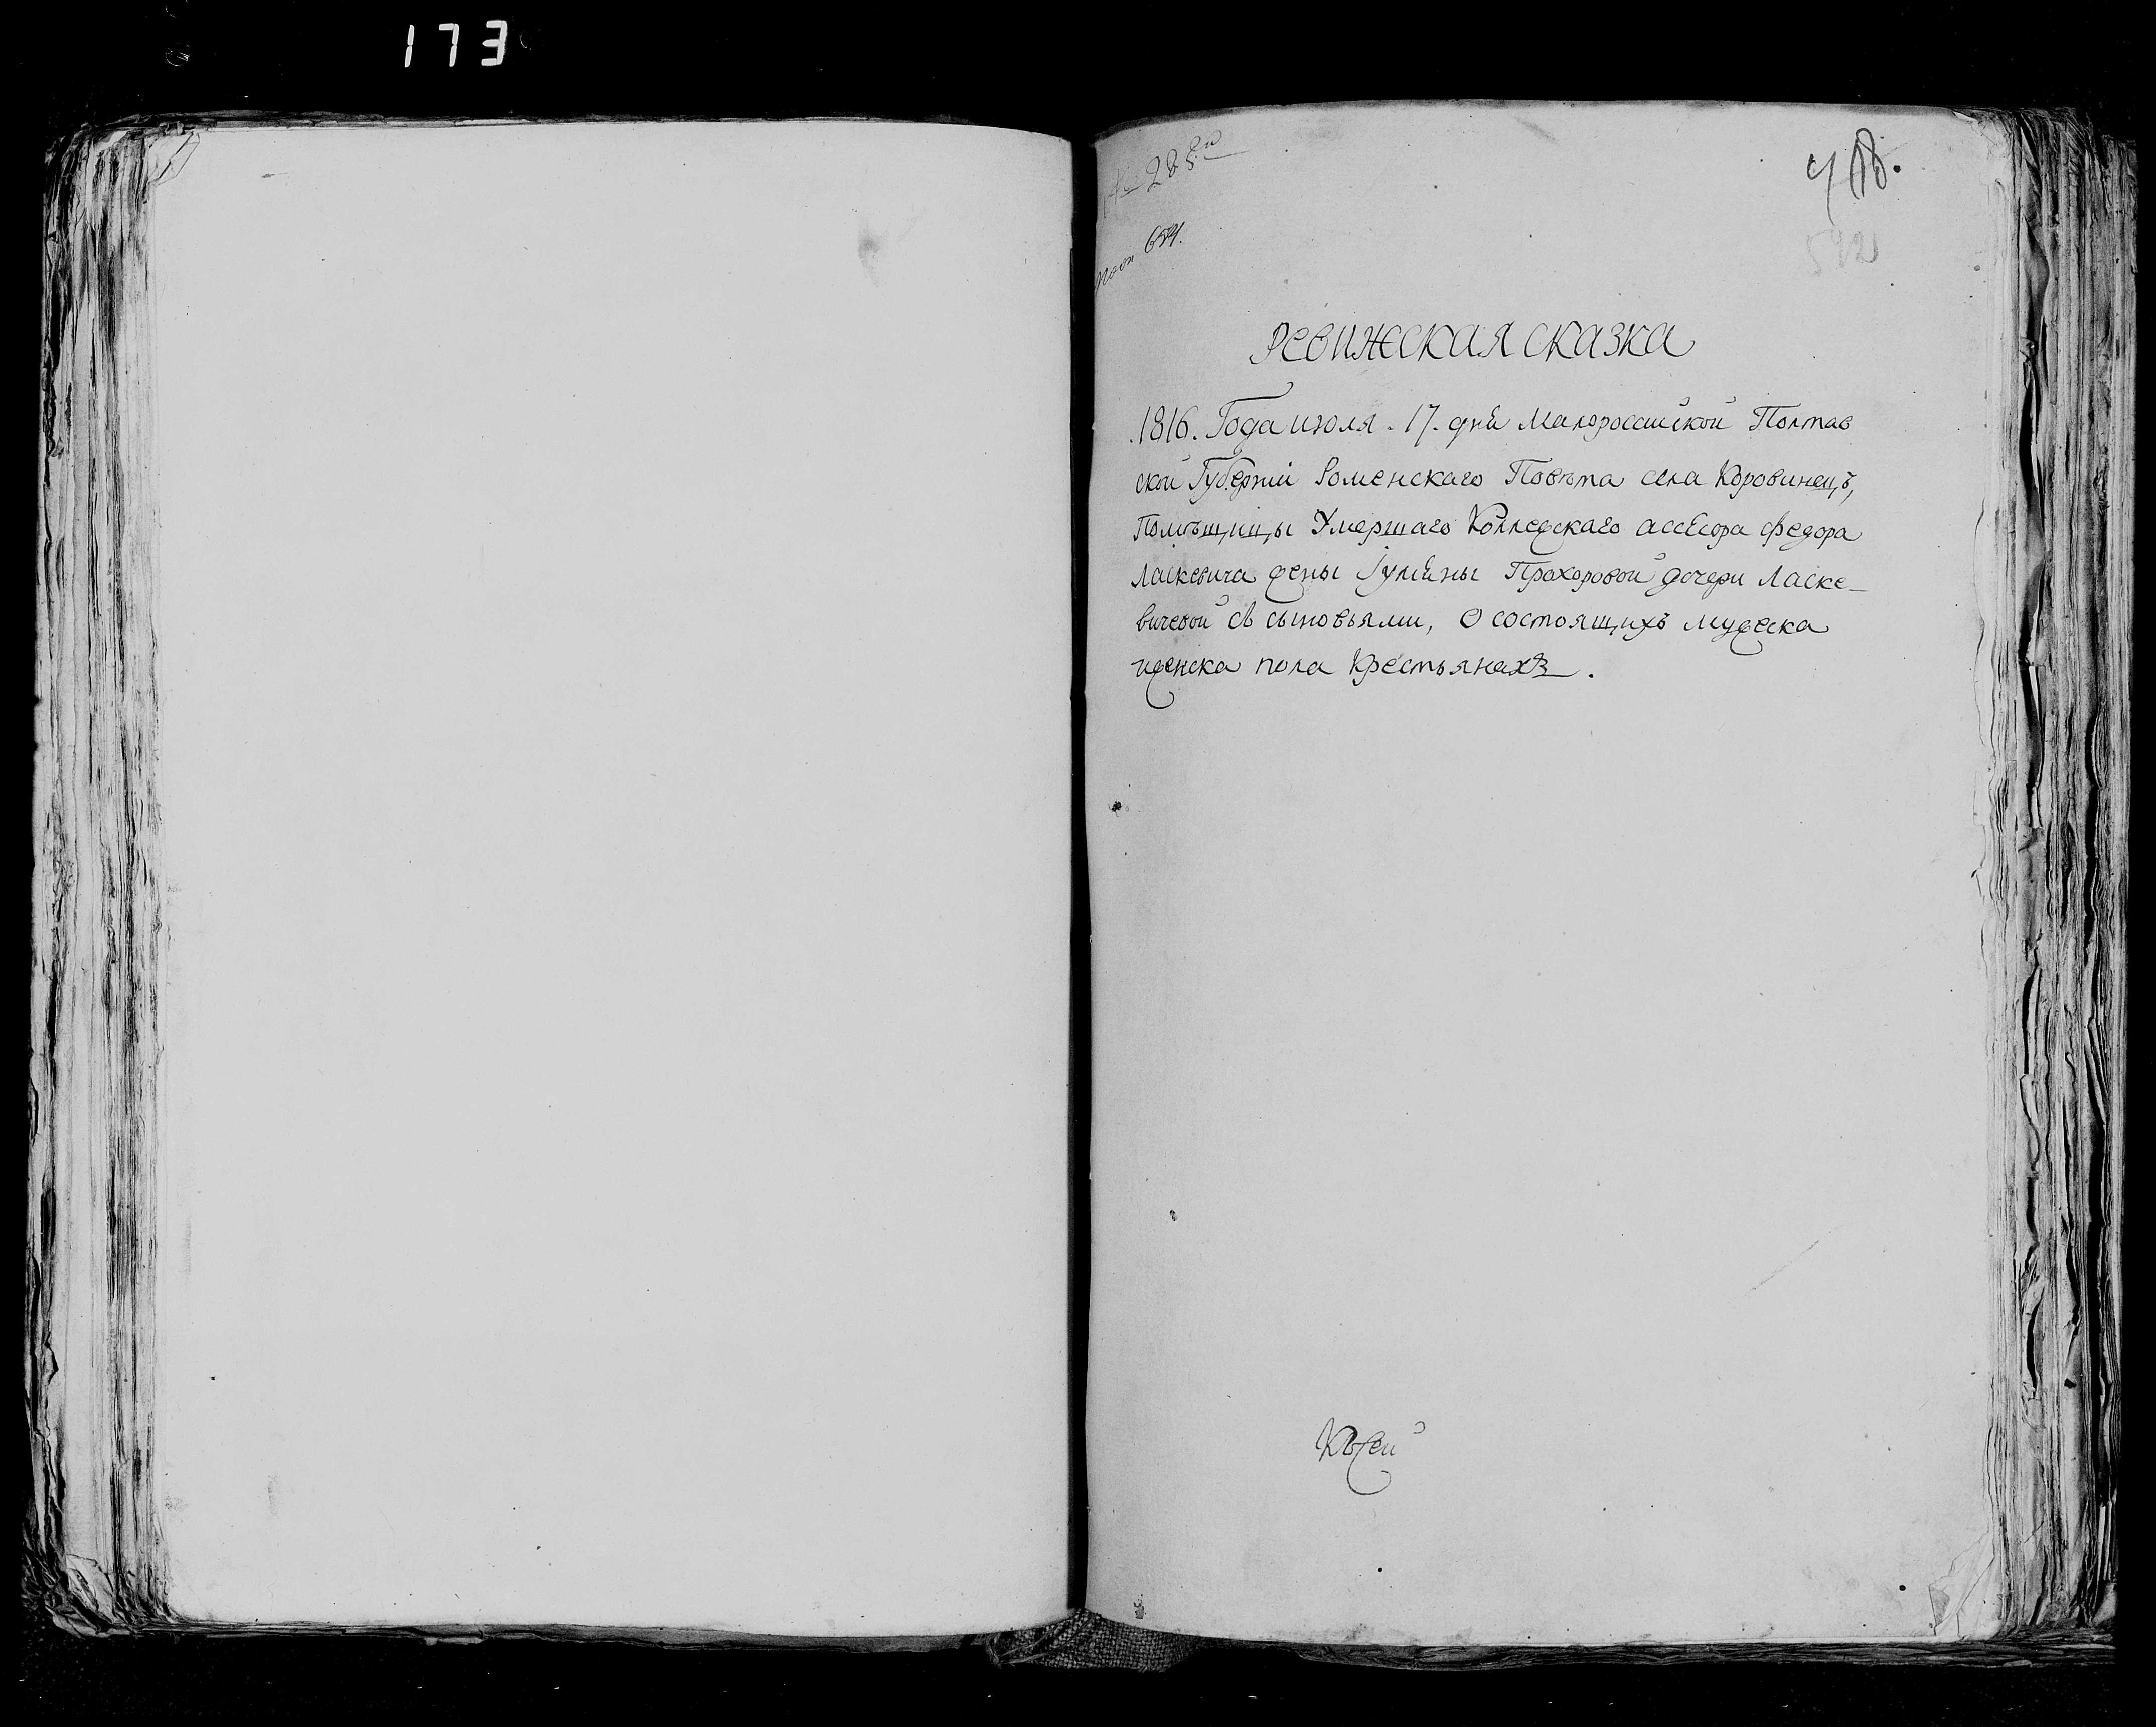 173
РЕВИЖСКАЯ СКАЗКА
1816. Года июля. 17. дня Малороссийской Полтав
ской Губерніи Роменскаго Повѣта села Коровинецъ,
Помѣщицы Умершаго Коллежскаго ассесора Федора
Ласкевича жены Прохоровой дочери Ласке-
вичевой съ сыновьями, О состоящихъ мужеска
иженска пола Крестьянахъ.
Къ сей